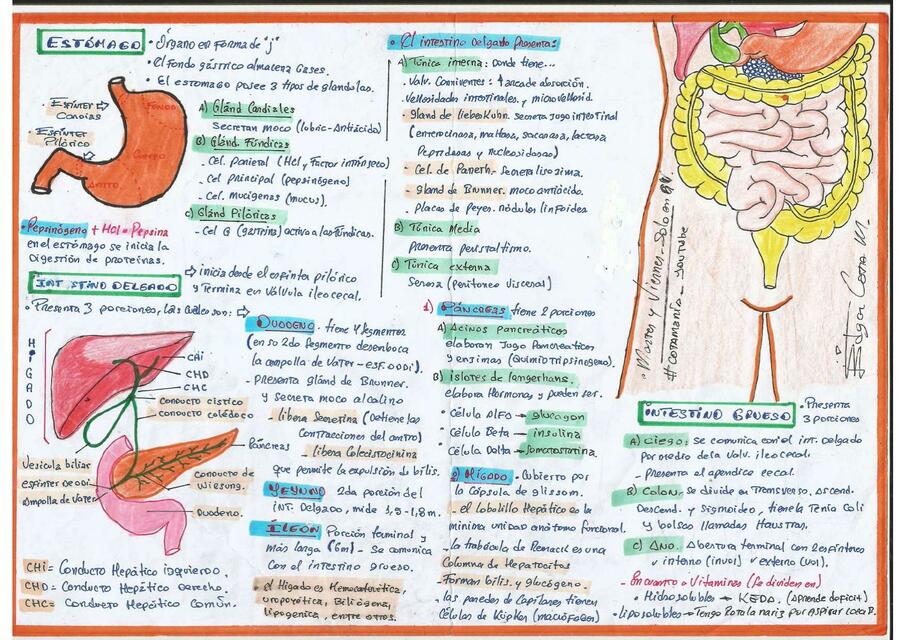 ESTÓMAGO
• Órgano en forma de "j"
• El fondo gástrico almacena gases.
• El estomago posee 3 tipos de glándulas.
Esfínter
Cardias
Esfínter
Pilórico
Fondo
Cuerpo
Antro
A) Gland Cardiales
Secretan moco (lubric-Antiácido)
B) Gland Fúndicas
- Cel parietal (HCl y Factor intrínseco)
- Cel principal (pepsinógeno)
- Cel. mucígenas (mucus).
C) Gland Pilóricas
- Cel G (gastrina) activa a las fúndicas.
• Pepsinógeno + HCl = Pepsina
en el estómago se inicia la
Digestión de proteínas.
INTESTINO DELGADO
⇨ inicia desde el esfínter pilórico
y Termina en Válvula ileocecal.
• Presenta 3 porciones, las cuales son: ⇨
HIGADO
CHI
CHD
CHC
Conducto cístico
Conducto colédoco
Páncreas
Conducto de
Wirsung.
Duodeno.
Vesicula biliar
esfinter de oddi
Ampolla de Vater
CHI = Conducto Hepático izquierdo.
CHD = Conducto Hepático derecho.
CHC = Conducto Hepático Común.
DUODENO - tiene 4 segmentos
(en su 2do segmento desemboca
la ampolla de Vater - esf. oddi)
- presenta gland de Brunner.
y secreta moco alcalino
- libera Secretina (Detiene las
contracciones del antro)
- libera Colecistocinina
que permite la expulsión de bilis.
YEYUNO 2da porción del
INT. Delgado, mide 1,5-1,8m.
ÍLEON Porción terminal y
más larga (6m) - Se comunica
con el intestino grueso.
el Higado es Hemocaterética,
uropoyética, Biliógena,
lipogénica, entre otros.
• El intestino Delgado Presenta:
A) Túnica interna: Donde tiene...
- Valv. Conniventes: ↑ area de absorción.
- Vellosidades intestinales y microvellosid.
- gland de lieberkuhn. secreta jugo intestinal
(enterocinasa, maltasa, sacarasa, lactasa
Peptidasas y nucleosidasas)
- Cel. de Paneth - Secreta lisozima.
- gland de Brunner. moco antiácido.
- Placas de Peyer. nódulos linfoides
B) Túnica Media
Presenta peristaltismo.
C) Túnica externa
Serosa (peritoneo visceral)
1) PÁNCREAS tiene 2 porciones
A) Acinos pancreáticos
elaboran Jugo Pancreático
y enzimas (Quimiotripsinógeno).
B) islotes de langerhans.
elabora Hormonas, y pueden ser.
• Célula Alfa → glucagon
• Célula Beta → insulina
• Célula Delta → somatostatina.
2) Hígado. Cubierto por
la Cápsula de glisson.
- el lobulillo Hepático es la
minima unidad anátomo funcional.
- la trabécula de Remack es una
Columna de Hepatocitos
- Forman bilis y glucógeno.
- las paredes de Capilares tienen
Células de Kúpfer (macrófagos)
- Martes y Viernes - Solo en
#COTAMANIA - youtube
Edgar Cota M.
INTESTINO GRUESO
• Presenta
3 porciones
A) Ciego: Se comunica con el int. Delgado
por medio de la Valv. ileocecal.
- presenta el apéndice cecal.
B) Colon - se divide en Transverso, Ascend.
Descend. y Sigmoideo, tiene la Tenia Coli
y bolsas llamadas Haustras.
C) Ano. Abertura terminal con 2 esfínteres
v interno (invol) v externo (vol).
- En cuanto a Vitaminas (Se dividen en)
• Hidrosolubles →
• liposolubles → Tengo Rota la nariz por Aspirar